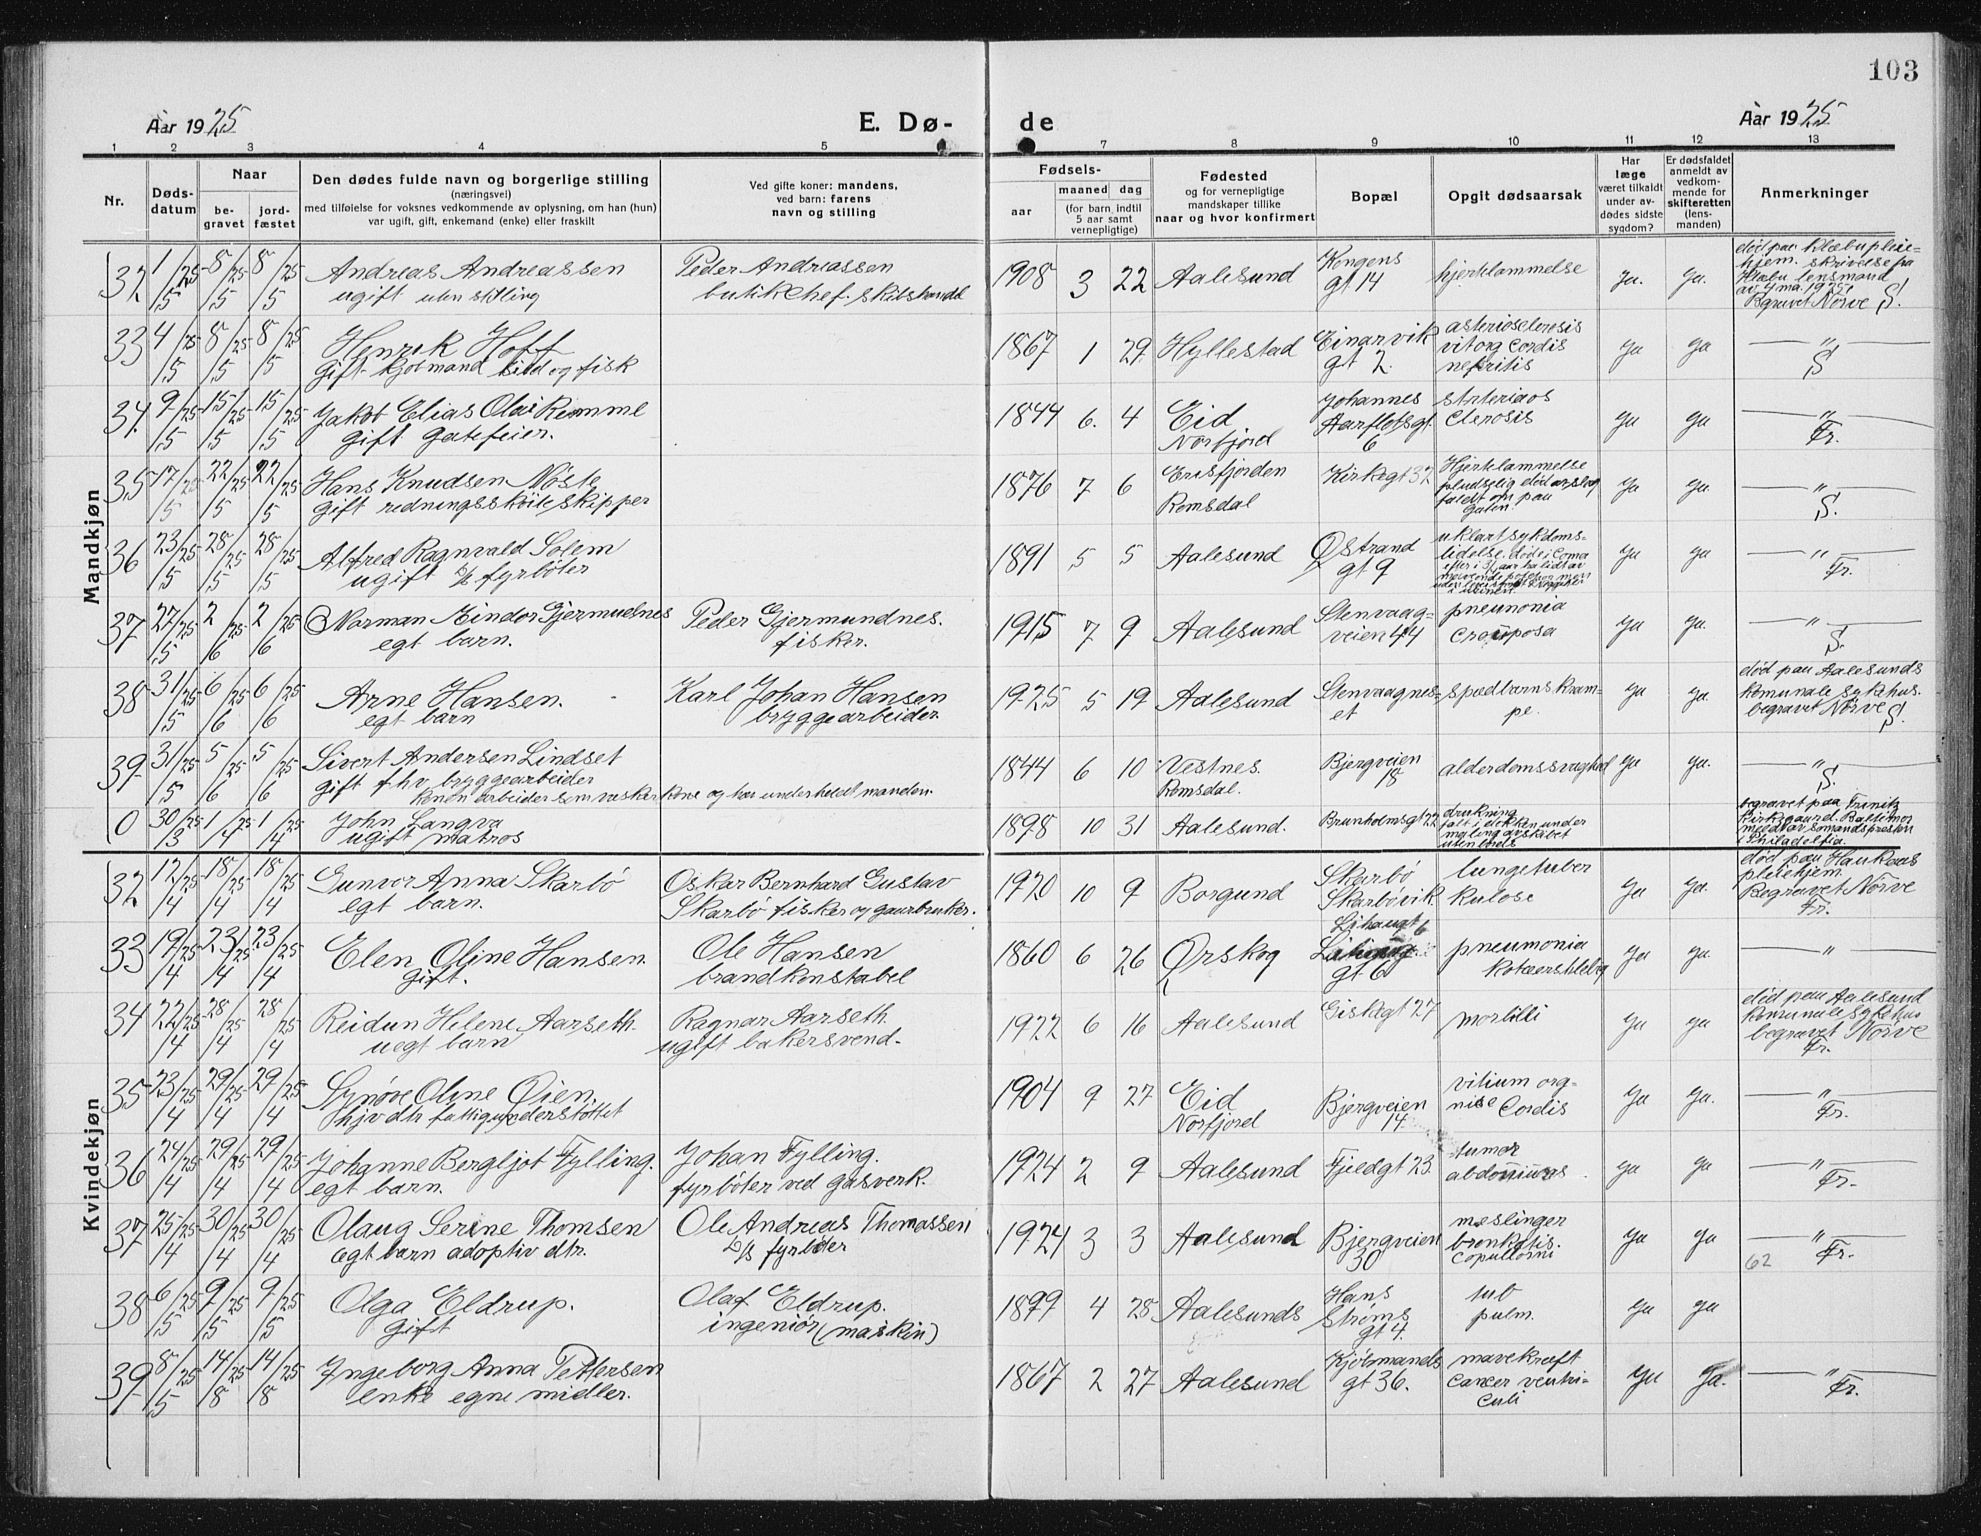 103
Aar 1925
E. Dø-
de
Aar 1925
1 2 3 4 5 7 8 9 10 11 12 13
Nr.
Døds-
datum
Naar
be-
gravet
jord-
fæstet
Den dødes fulde navn og borgerlige stilling
(næringsvei)
med tilføielse for voksnes vedkommende av oplysning, om han (hun)
var ugift, gift, enkemand (enke) eller fraskilt
Ved gifte koner: mandens,
ved barn: farens
navn og stilling
Fødsels-
aar
maaned dag
(for barn indtil
5 aar samt
vernepligtige)
Fødested
og for vernepligtige
mandskaper tillike
naar og hvor konfirmert
Bopæl
Opgit dødsaarsak
Har
læge
været tilkaldt
under av-
dødes sidste
sygdom?
Er dødsfaldet
anmeldt av
vedkom-
mende for
skifteretten
(lens-
manden)
Anmerkninger
Mandkjøn
32 1/25 5 8/25 5 8/25 5 Andreas Andreassen
ugift uten stilling
Peder Andreassen
butikchef. skibshandel
1908 3 22 Aalesund
Kongens
gt 14
hjertelammelse
ja. ja.
død paa Klæbu pleie-
hjem. skrivelse fra
Klæbu lensmand
av 4 mai 1925
Begravet Nørve S.
33 4/25 5 8/25 5 8/25 5 Henrik Hoff
gift kjøbmand sild og fisk
1867 1 29 Hyllestad
Einarvik
gt 2.
asterioselerosis
vit org cordis
nefritis
ja ja
— " —
S
34 9/25 5 15/25 5 15/25 5 Jakob Elias Olai Remme
gift gatefeier.
1844 6. 4 Eid
Norfjord
Johannes
Aarflotsgt.
6
Clerosis
ja ja
— " —
Fr.
35 17/25 5 22/25 5 22/25 5 Hans Knudsen Nøste
gift redningsskøite skipper
1876 7 6 Erisfjorden
Romsdal
Kirkegt 32
Hjertelammelse
faldt om paa
gaten.
ja ja.
— " —
S.
36 23/25 5 28/25 5 28/25 5 Alfred Ragnvald Solem
ugift fyrbøter
1891 5 5 Aalesund
Østrand
gt 9
uklart sykdoms-
lidelse. døde i Coma
ja ja
— " —
Fr.
37 27/25 5 2/25 6 2/25 6 Norman Eindor Gjermundnes
egt barn.
Peder Gjermundnes.
fisker.
1915 7 9 Aalesund
Stenvaag-
veien 44
pneunonia
Crouposa
ja ja.
— " —
S.
38 31/25 5 6/25 6 6/25 6 Arne Hansen.
egt barn
Karl Johan Hansen
bryggearbeider.
1925 5 19 Aalesund
Stenvaagnes-
et
spædbarns kram-
pe.
ja ja.
død paa Aalesunds
komunale sykehus.
begravet Nørve S.
39 31/25 5 5/25 6 5/25 6 Sivert Andersen Lindset
gift f.h.v. bryggearbeider
konen arbeider som vaskerkone og har underholdt manden.
1844 6 10 Vestnes.
Romsdal.
Bjergveien
18
alderdomssvaghed
ja ja.
— " —
S.
0 30/25 3 1/25 4 1/25 4 John Langva
ugift matros
1898 10 31 Aalesund. Brunholmsgt 22
drukning
falt i dokken under
maling av skibet
begravet paa Trinity
Kirkegaard. Baltimor
meldt av sømandspresten
i Philadelfia.
Kvindekjøn
32 12/25 4 18/25 4 18/25 4 Gunvor Anna Skarbø
egt barn.
Oskar Bernhard Gustav
Skarbø fisker og gaarbruker.
1920 10 9 Borgund
Skarbø
Skarbøvik
lungetuber
kulose
ja ja.
død paa Haukaas
pleiehjem.
Begravet Nørve
Fr.
33 19/25 4 23/25 4 23/25 4 Elen Oline Hansen.
gift.
Ole Hansen
brandkonstabel
1860 6 26 Ørskog
Lihaugt 6
gt 6
pneumonia
ja ja.
— " —
34 22/25 4 28/25 4 28/25 4 Reidun Helene Aarseth
uegt barn
Ragnar Aarseth
ugift bakersvend.
1922 6 16 Aalesund Giskegt 27 morbilli
ja ja
død paa Aalesund
komunale sykehus
begravet Nørve
Fr.
35 23/25 4 29/25 4 29/25 4 Synøve Oline Øien.
hjv dtr fattigunderstøttet
1904 9 27 Eid
Norfjord
Bjergveien
14.
vitium org-
nise Cordis
ja ja.
— " —
Fr.
36 24/25 4 29/25 4 29/25 4 Johanne Bergljot Fylling.
egt barn.
Johan Fylling.
fyrbøter ved gasverk.
1924 2 9 Aalesund Fjeldgt 23.
tumor
ja ja
— " —
Fr.
37 25/25 4 30/25 4 30/25 4 Olaug Serine Thomsen
egt barn adoptiv dtr.
Ole Andreas Thomassen
D/S fyrbøter
1924 3 3 Aalesund
Bjergveien
30
meslinger
ja ja
— " —
62 Fr.
38 6/25 5 9/25 5 9/25 5 Olga Eldrup.
gift
Olaf Eldrup.
ingeniør (maskin)
1899 4 28 Aalesunds
Hans
Strøms
gt 4.
tub
pulm.
ja ja
39 8/25 5 14/25 8 14/25 8 Ingeborg Anna Pettersen
enke egne midler.
1867 2 27 Aalesund
Kjøbmands
gt 36.
mavekræft
cancer ventri-
culi
ja ja.
— " —
Fr.